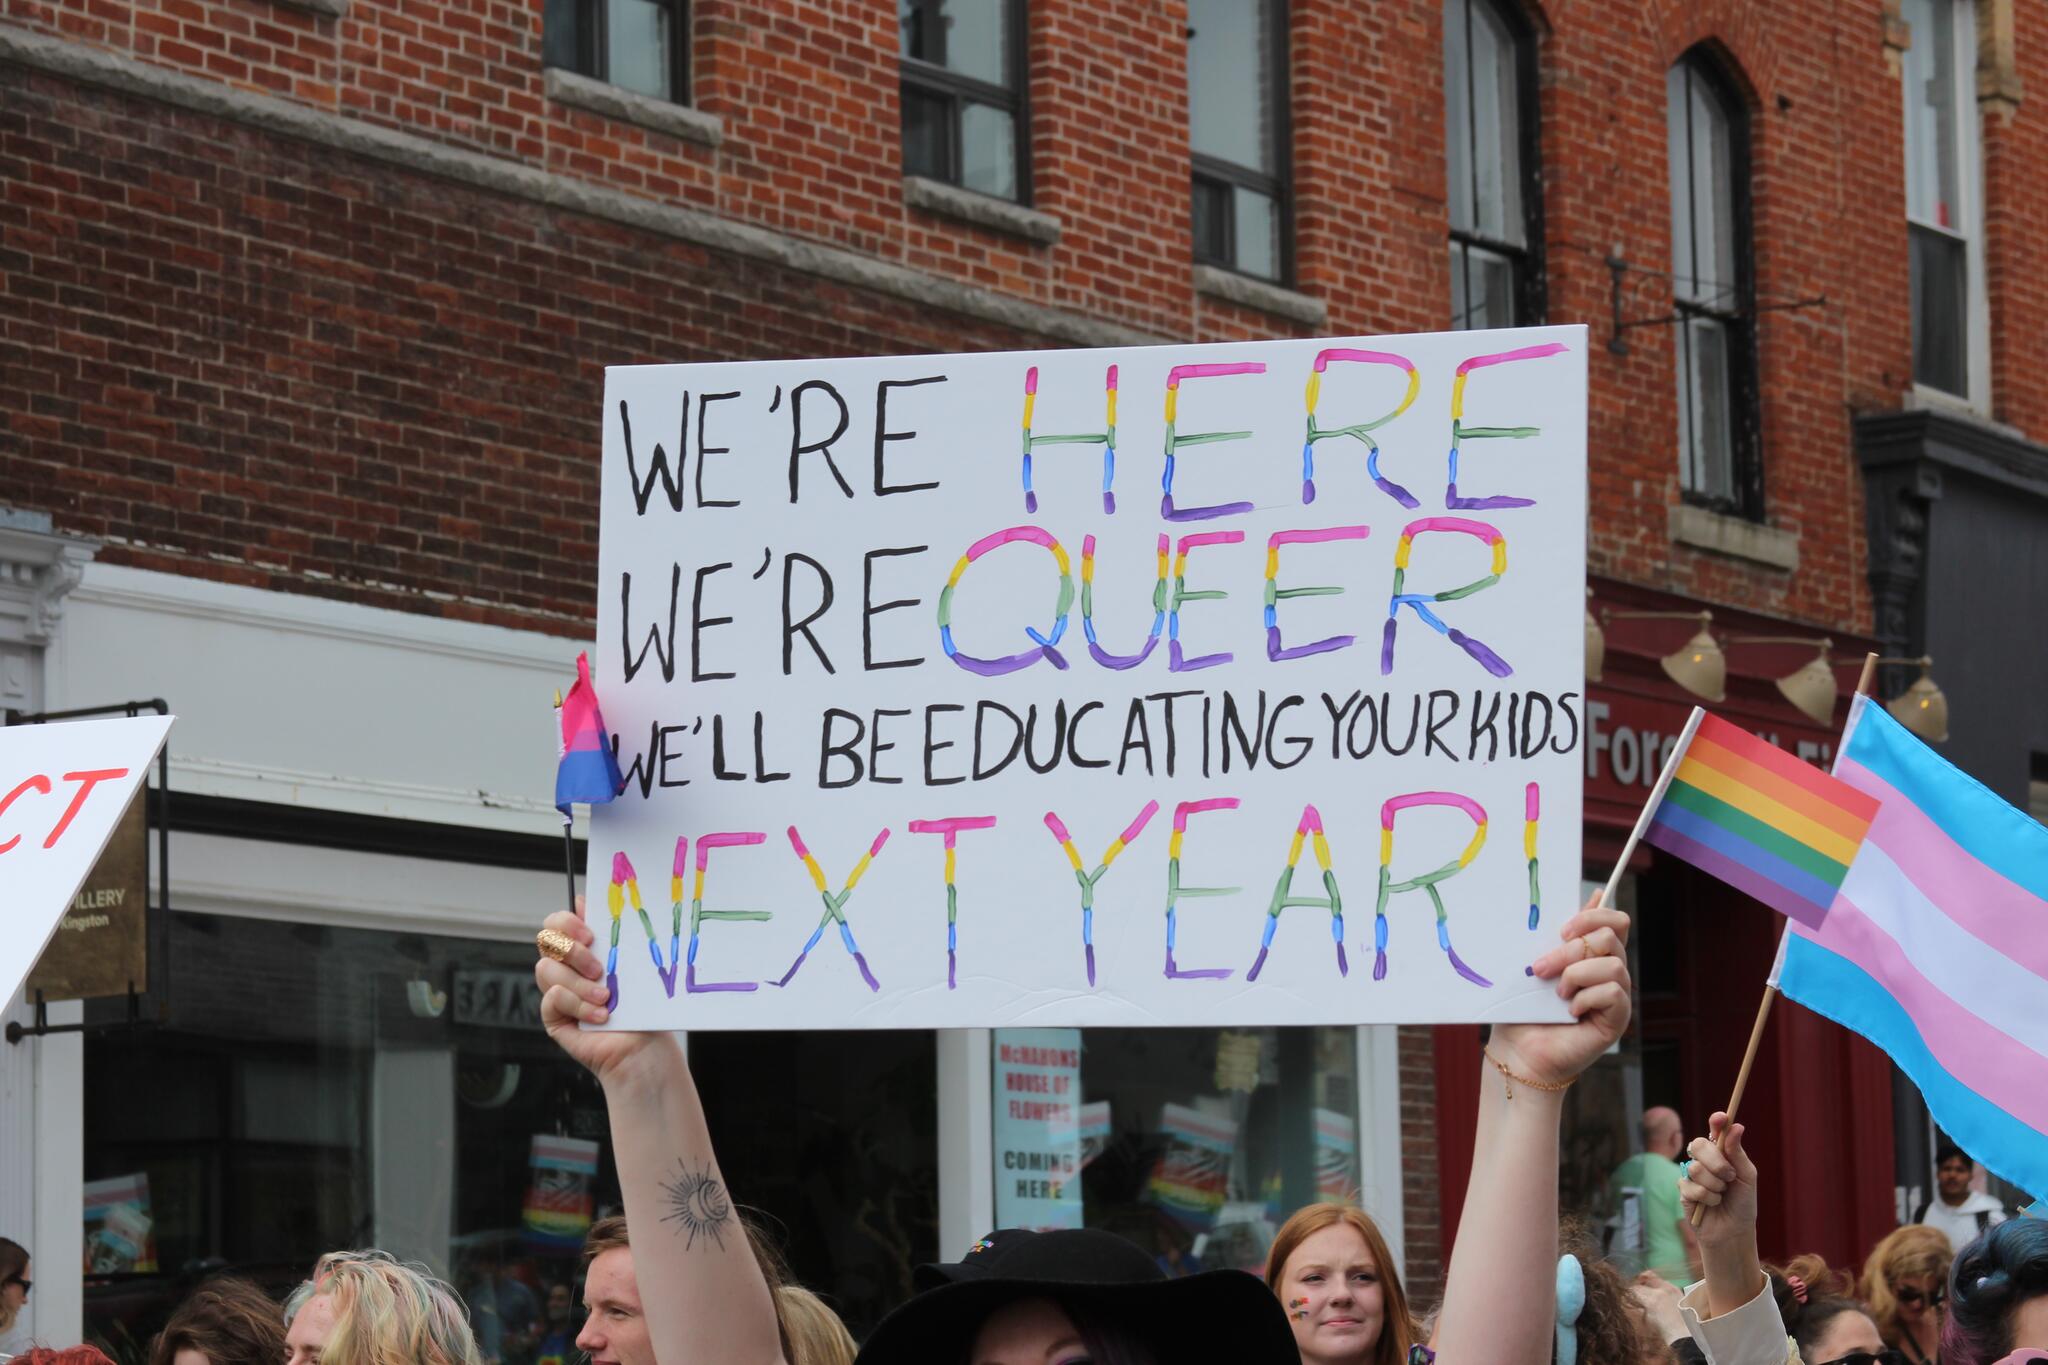 WE'RE HERE
WE'RE QUEER
WE'LL BE EDUCATING YOUR KIDS
NEXT YEAR!
CT
ILLERY
Kingston
CARE
McMAHONS
HOUSE OF
FLOWERS
COMING
HERE